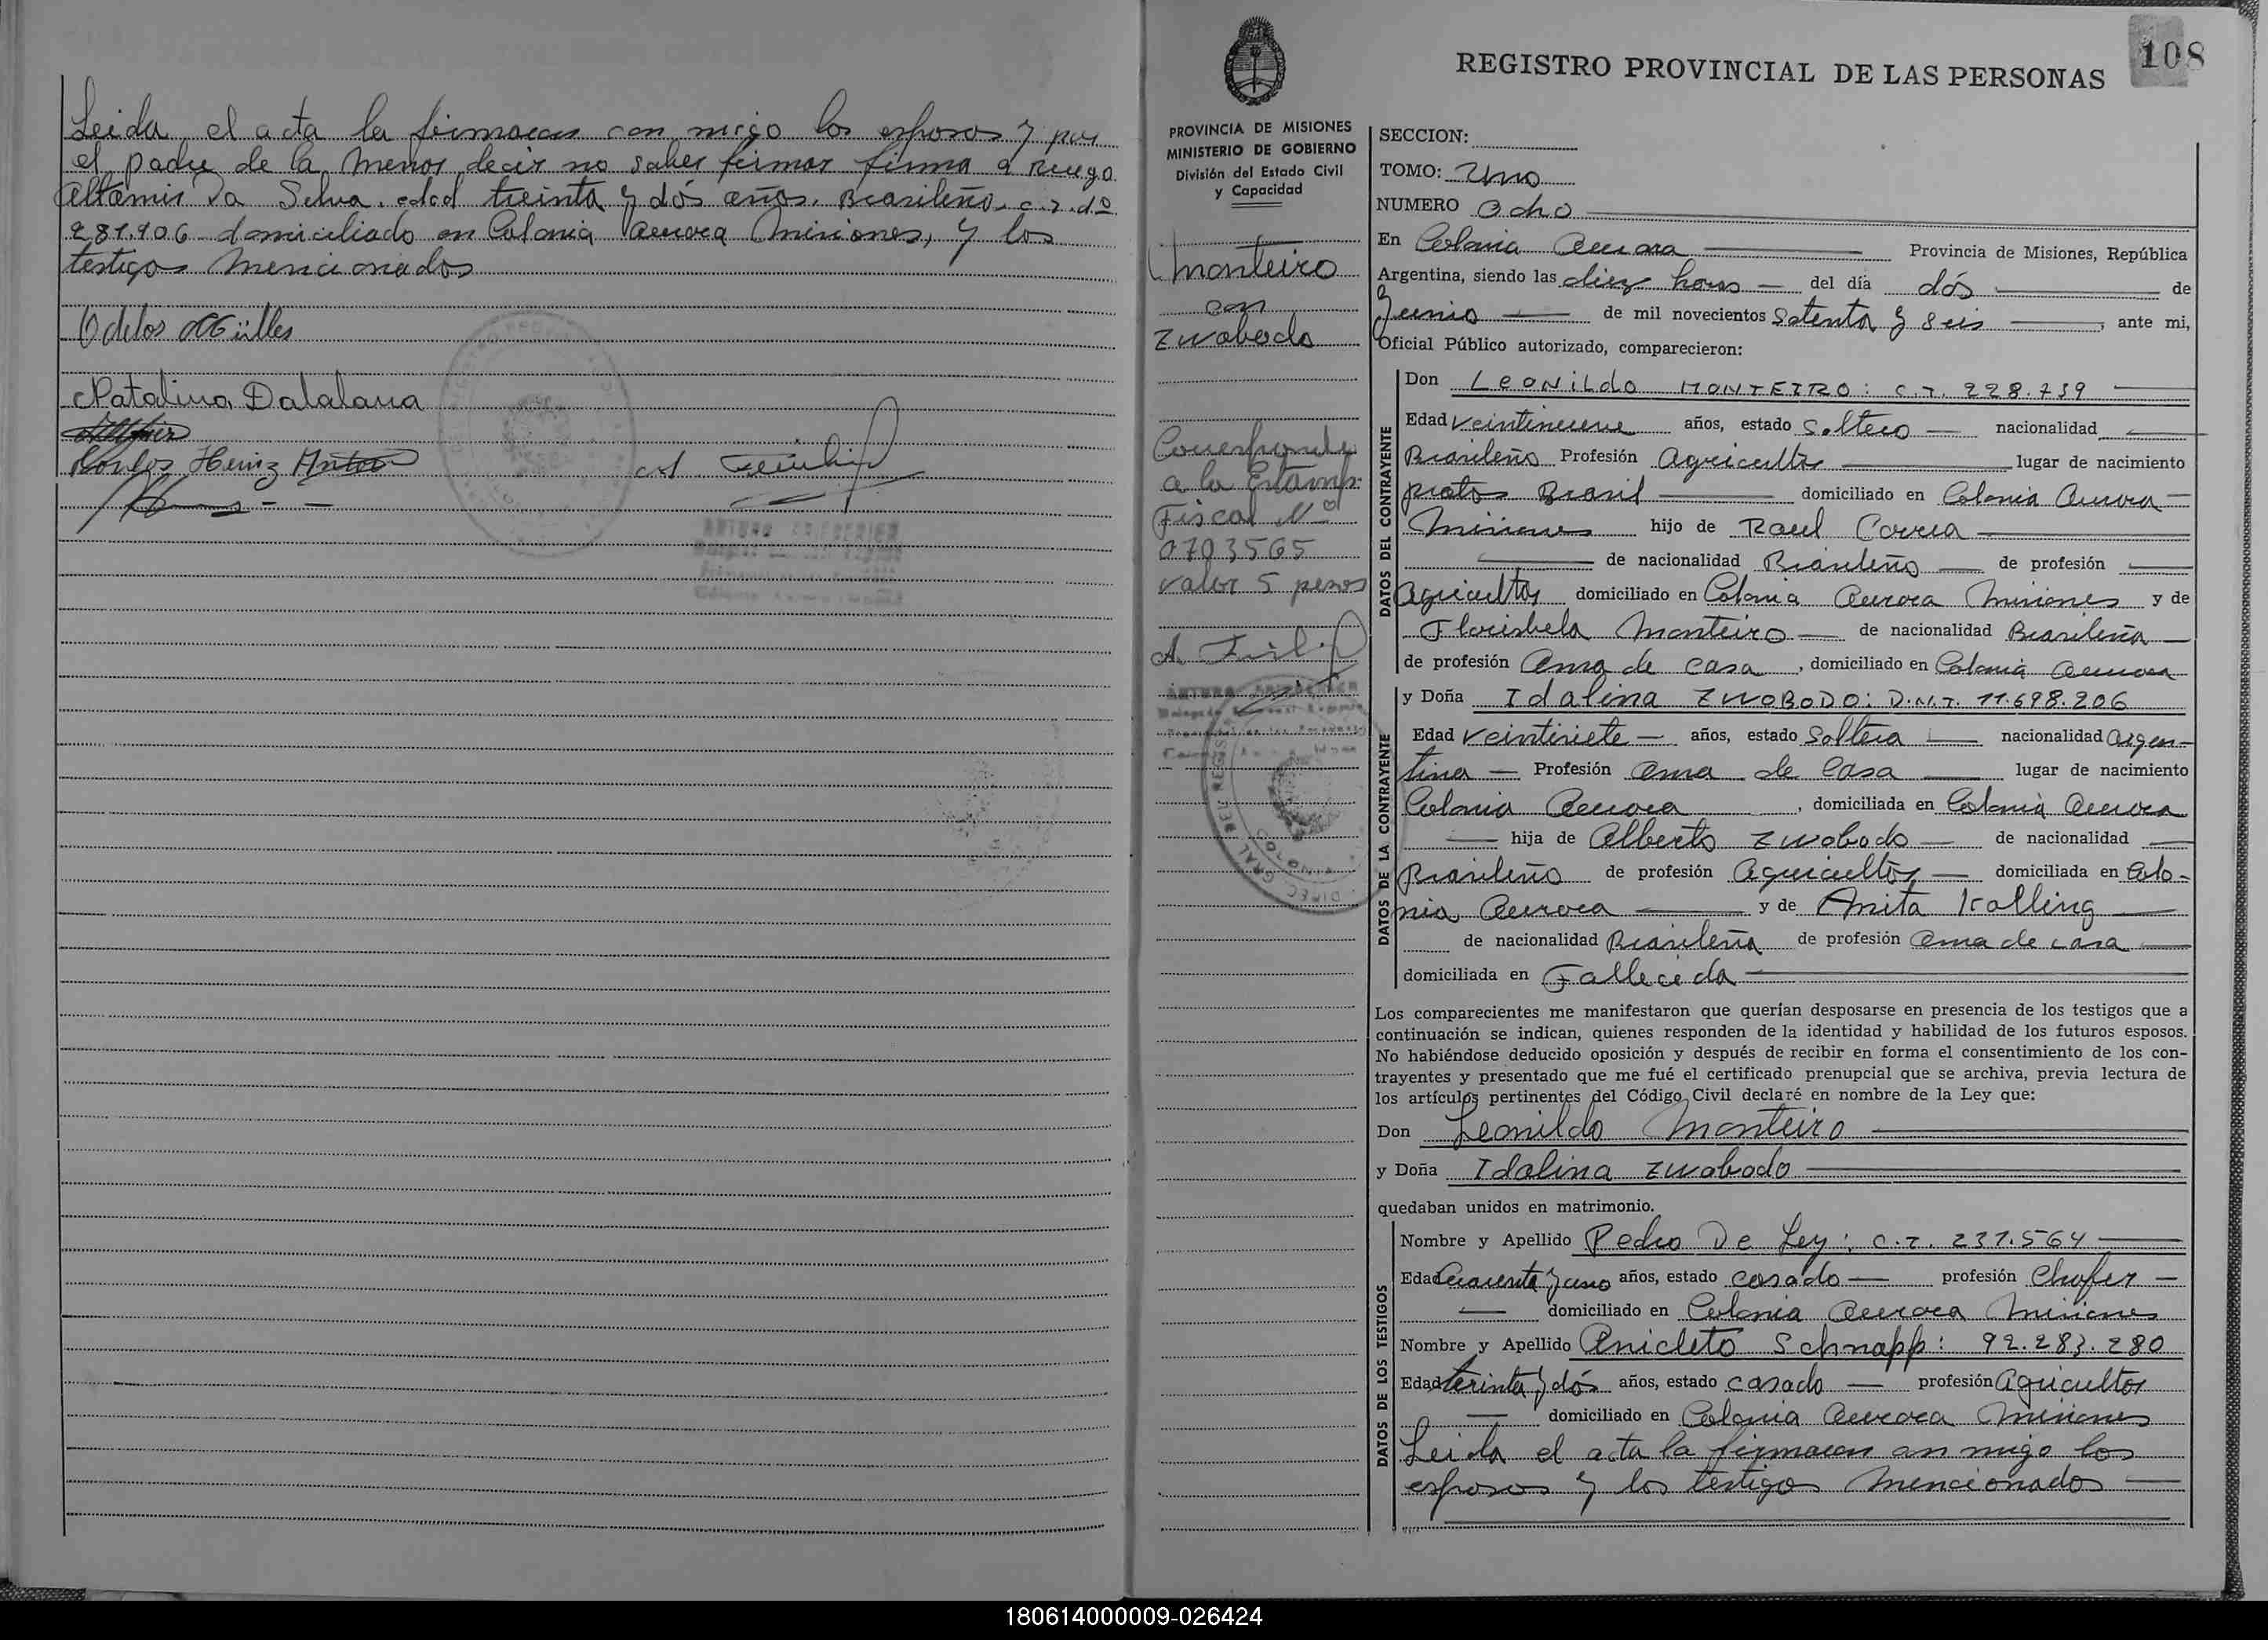 Leida el acta la firmaron con migo los esposos y por
el padre de la menor decir no saber firmar firma a ruego
Altamir Da Selva. edad treinta y dós años. Brasileño c.I. do
281.906 domiciliado en Colonia Aurora Misiones, y los
testigos mencionados
Odelos Mülles
Natalina Dalalana
Carlos Heinz
108
REGISTRO PROVINCIAL DE LAS PERSONAS
PROVINCIA DE MISIONES
MINISTERIO DE GOBIERNO
División del Estado Civil
y Capacidad
Monteiro
con
Zwobodo
Corresponde
a la Estamp.
Fiscal Nº
0703565
valor 5 pesos
SECCION:
TOMO: Uno
NUMERO Ocho
En Colonia Aurora Provincia de Misiones, República
Argentina, siendo las diez horas del día dós de
Junio de mil novecientos Setenta y Seis, ante mi,
Oficial Público autorizado, comparecieron:
DATOS DEL CONTRAYENTE
Don Leonildo MONTEIRO: C.I. 228.739
Edad veintinueve años, estado Soltero nacionalidad
Brasileño Profesión Agricultor lugar de nacimiento
pratos Brasil domiciliado en Colonia Aurora
Misiones hijo de Raul Correa
de nacionalidad Brasileño de profesión
Agricultor domiciliado en Colonia Aurora Misiones y de
Florisbela Monteiro de nacionalidad Brasileña
de profesión Ama de casa, domiciliado en Colonia Aurora
DATOS DE LA CONTRAYENTE
y Doña Idalina ZWOBODO: D.N.I. 11.698.206
Edad veintisiete años, estado Soltera nacionalidad Argen-
tina Profesión Ama de Casa lugar de nacimiento
Colonia Aurora, domiciliada en Colonia Aurora
hija de Alberto Zwobodo de nacionalidad
Brasileño de profesión Agricultor domiciliada en Colo-
nia Aurora y de Anita Kolling
de nacionalidad Brasileña de profesión Ama de casa
domiciliada en Fallecida
Los comparecientes me manifestaron que querían desposarse en presencia de los testigos que a
continuación se indican, quienes responden de la identidad y habilidad de los futuros esposos.
No habiéndose deducido oposición y después de recibir en forma el consentimiento de los con-
trayentes y presentado que me fué el certificado prenupcial que se archiva, previa lectura de
los artículos pertinentes del Código Civil declaré en nombre de la Ley que:
Don Leonildo Monteiro
y Doña Idalina Zwobodo
quedaban unidos en matrimonio.
DATOS DE LOS TESTIGOS
Nombre y Apellido Pedro De Ley: C.I. 237.564
Edad Cuarenta y uno años, estado casado profesión Chofer
domiciliado en Colonia Aurora Misiones
Nombre y Apellido Anicleto Schnapp: 92.283.280
Edad terinta y dós años, estado casado profesión Agricultor
domiciliado en Colonia Aurora Misiones
Leida el acta la firmaron con migo los
esposos y los testigos mencionados
180614000009-026424